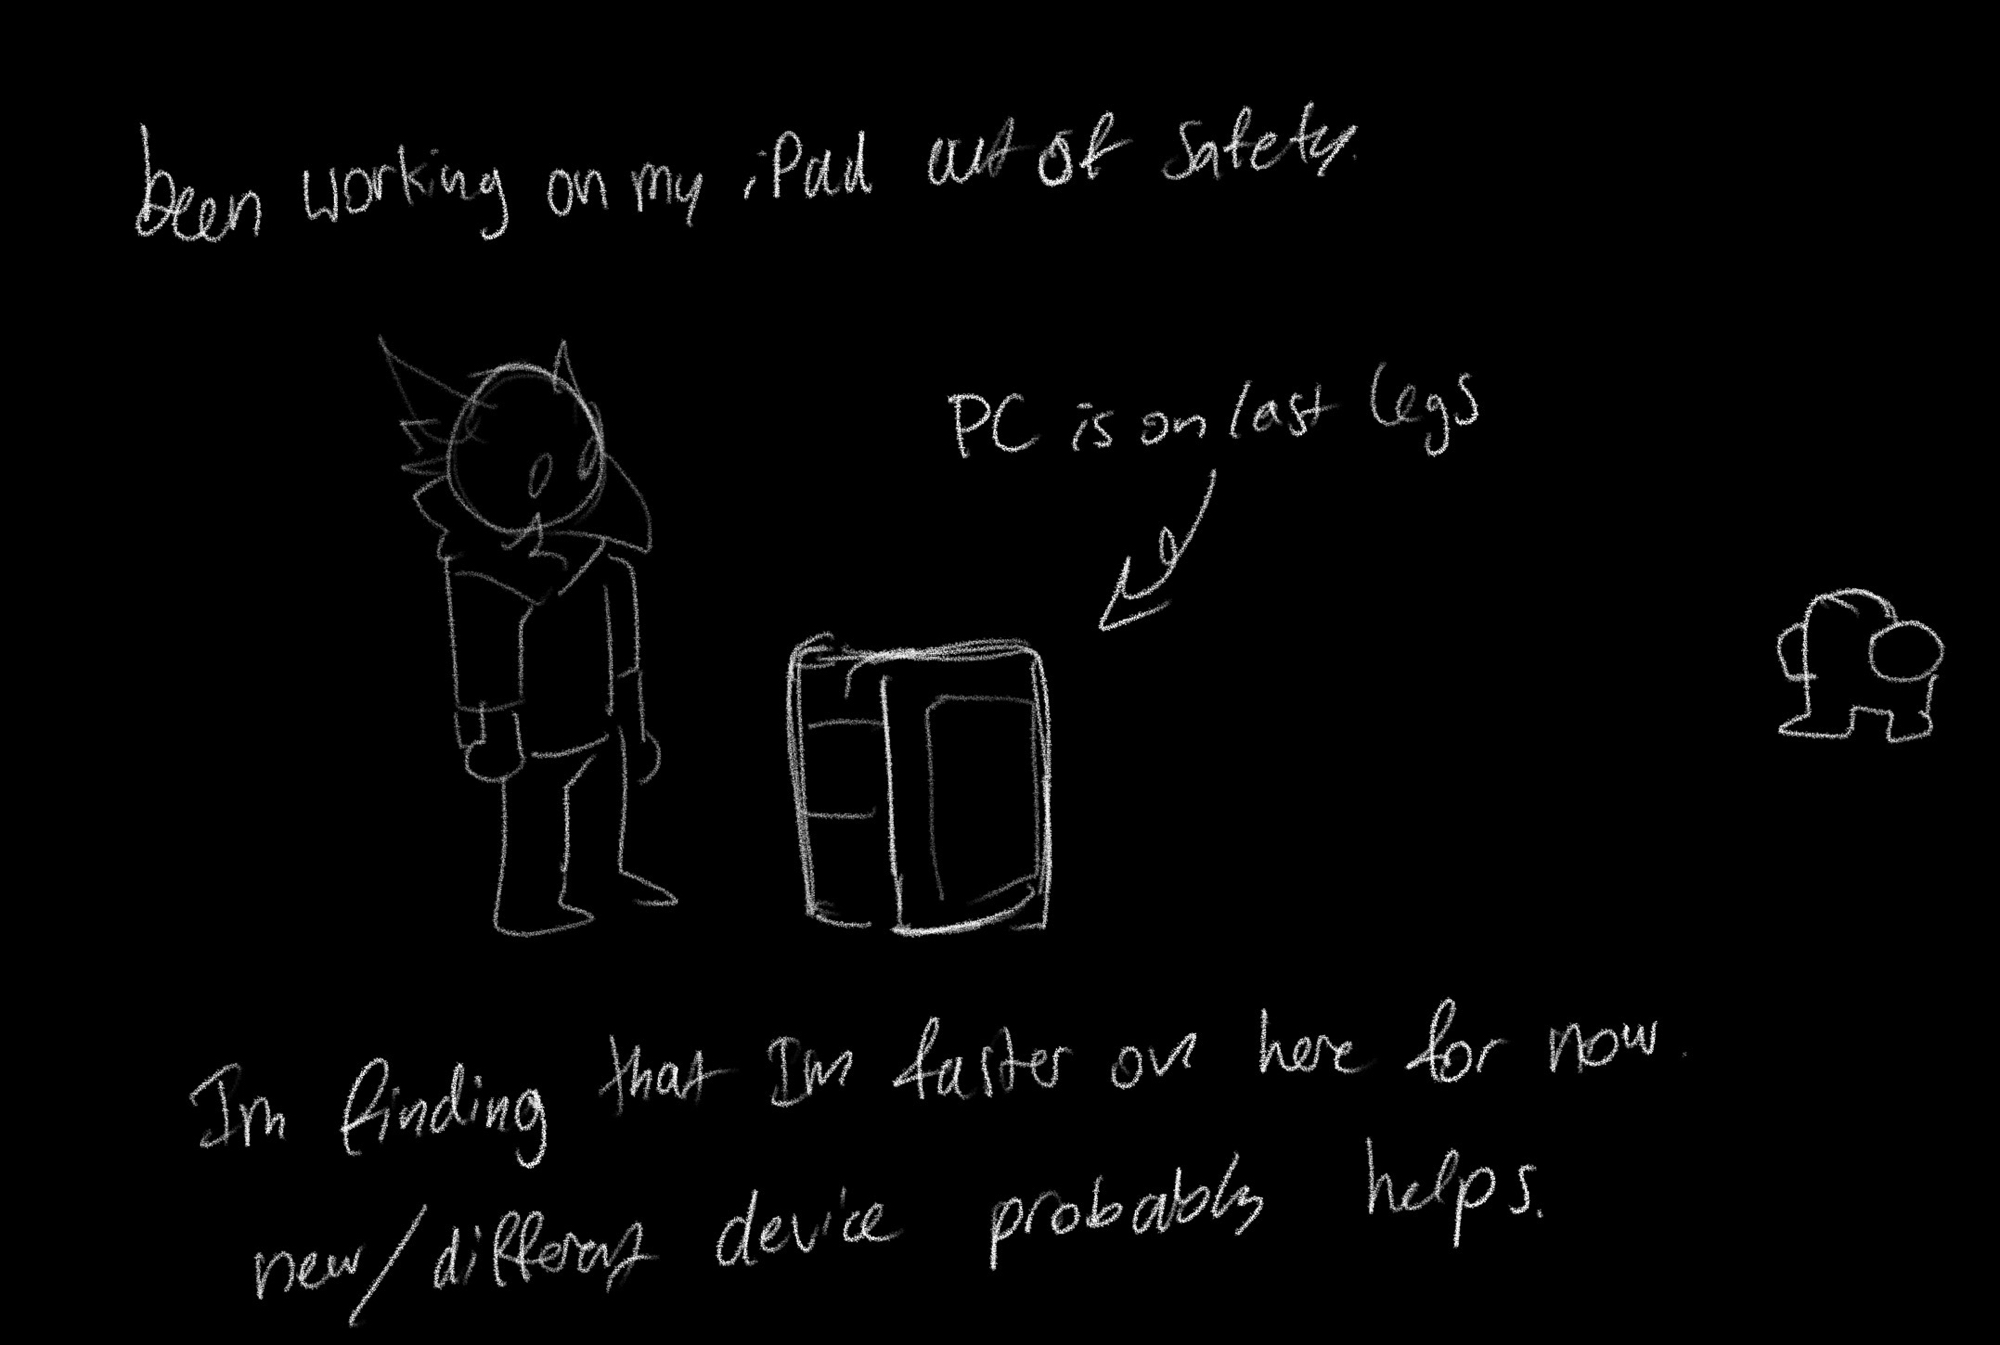 been working on my iPad out of safety.
PC is on last legs
Im finding that Im faster on here for now.
new/different device probably helps.